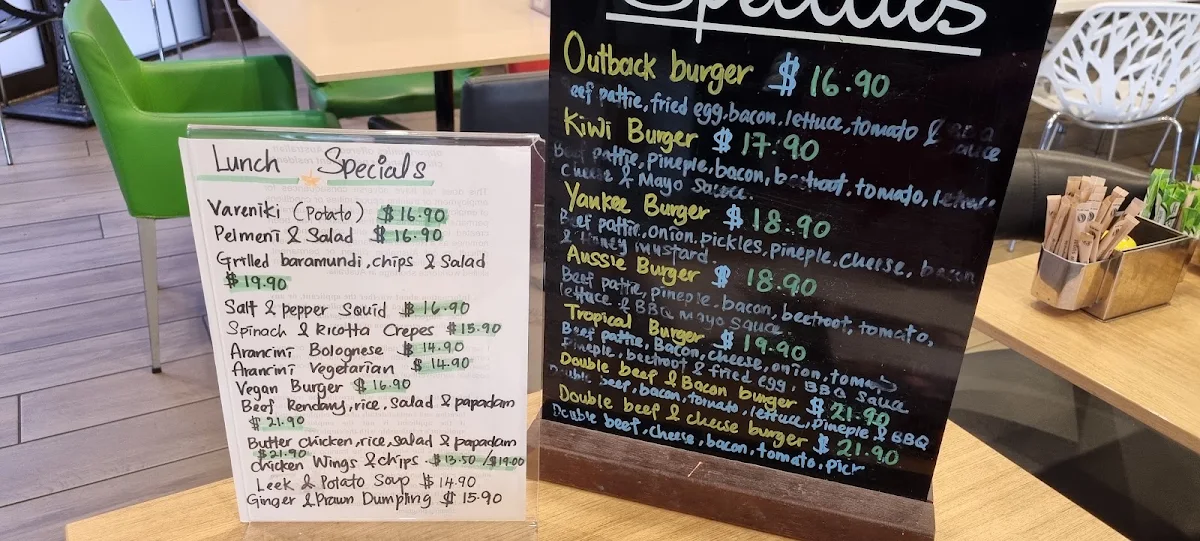 Lunch Specials
Vareniki (Potato) $16.90
Pelmeni & Salad $16.90
Grilled baramundi, chips & Salad
$19.90
Salt & pepper squid $16.90
Spinach & Ricotta Crepes $15.90
Arancini Bolognese $14.90
Arancini Vegetarian $14.90
Vegan Burger $16.90
Beef Rendang, rice, salad & papadam
$21.90
Butter chicken, rice, salad & papadam
$21.90
chicken Wings & chips $13.50/$19.00
Leek & Potato Soup $14.90
Ginger & Prawn Dumpling $15.90
Outback burger $16.90
eef pattie, fried egg, bacon, lettuce, tomato & BBQ
sauce
Kiwi Burger $17.90
Beef pattie, pineple, bacon, beetroot, tomato, lettuce
cheese & Mayo sauce.
Yankee Burger $18.90
Beef pattie, onion, pickles, pineple, cheese, bacon
& Honey mustard.
Aussie Burger $18.90
Beef pattie, pineple, bacon, beetroot, tomato,
lettuce & BBQ Mayo Sauce
Tropical Burger $19.90
Beef pattie, Bacon, cheese, onion, tomato
Pineple, beetroot & fried egg, BBQ sauce
Double beef & Bacon burger $21.90
Double beef, bacon, tomato, lettuce, pineple & BBQ
Double beef & cheese burger $21.90
Double beef, cheese, bacon, tomato, pick